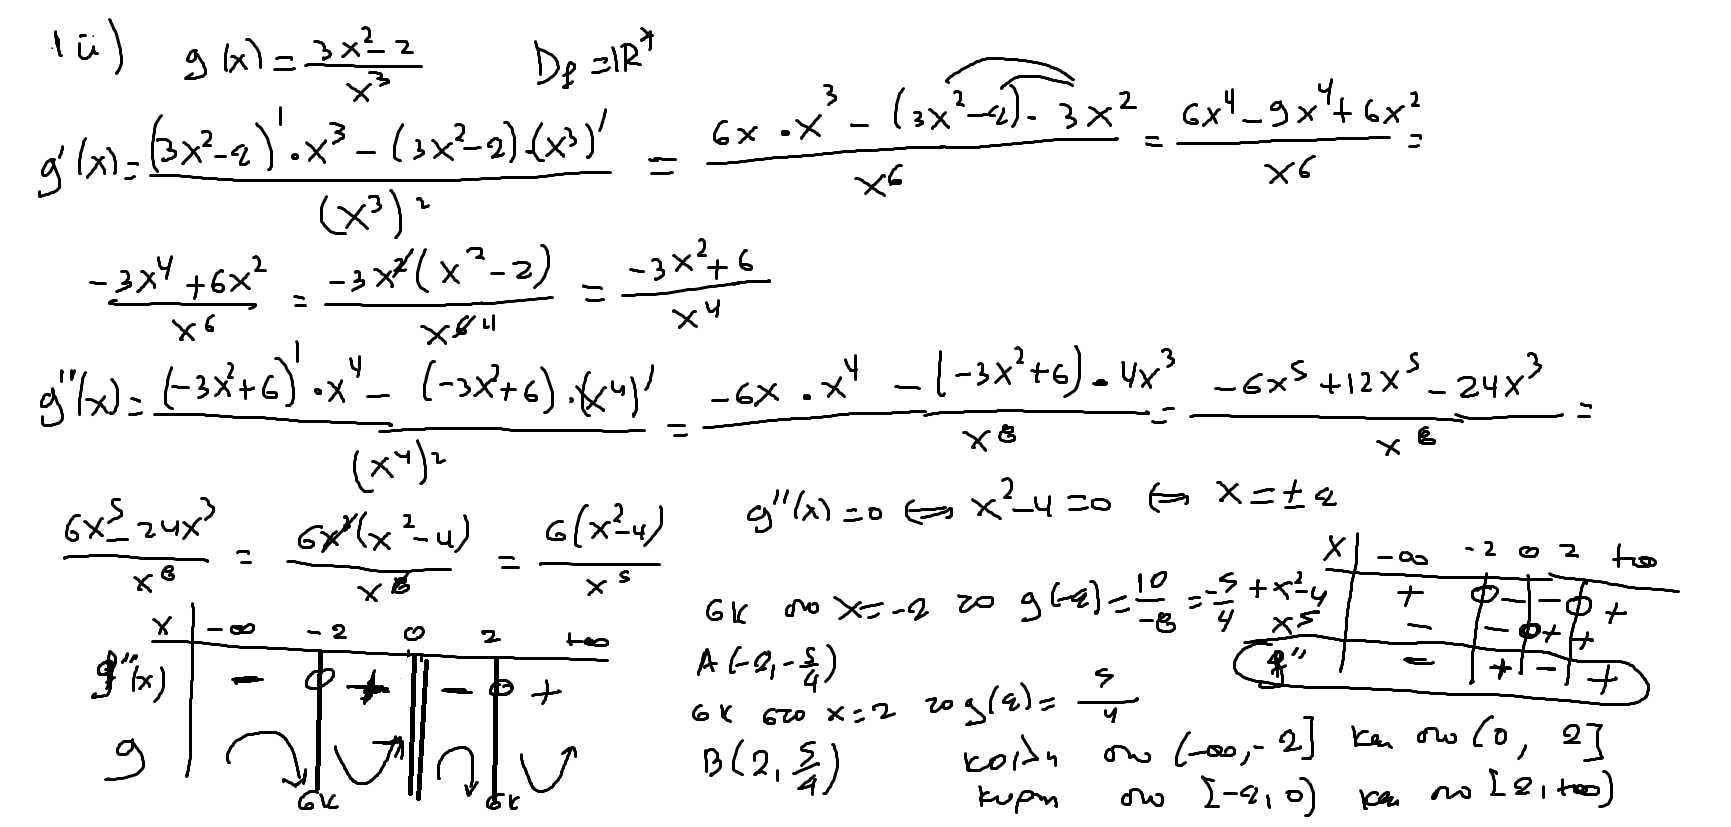 1 ii) g(x) = (3x²-2)/x³   D_f = ℝ*
g'(x) = ((3x²-2)'·x³ - (3x²-2)·(x³)')/(x³)² = (6x·x³ - (3x²-2)·3x²)/x⁶ = (6x⁴-9x⁴+6x²)/x⁶ =
(-3x⁴+6x²)/x⁶ = -3x²(x²-2)/x⁶ ⁴ = (-3x²+6)/x⁴
g''(x) = ((-3x²+6)'·x⁴ - (-3x²+6)·(x⁴)')/(x⁴)² = (-6x·x⁴ - (-3x²+6)·4x³)/x⁸ = (-6x⁵+12x⁵-24x³)/x⁸ =
(6x⁵-24x³)/x⁸ = 6x³(x²-4)/x⁸ = 6(x²-4)/x⁵   g''(x)=0 ⟺ x²-4=0 ⟺ x=±2
x | -∞ -2 0 2 +∞
g''(x) | - 0 + - 0 +
g
σκ σκ
σκ στο x=-2 το g(-2) = 10/-8 = -5/4
A(-2,-5/4)
σκ στο x=2 το g(2) = 5/4
B(2, 5/4)
x | -∞ -2 0 2 +∞
x²-4 | + 0 - - 0 +
x⁵ | - - 0 + +
f'' | - + - +
κοίλη στο (-∞,-2] και στο (0, 2]
κυρτη στο [-2,0) και στο [2,+∞)